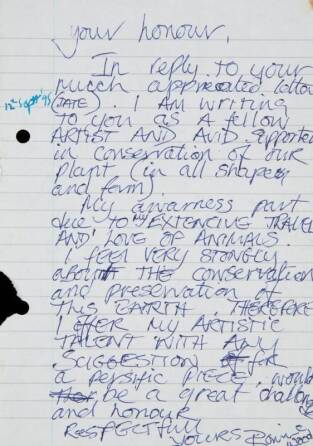 your honour,
In reply to your
much apprecated letter
12th Sept '95 (DATE). I AM WRITING
to you as a fellow
ARTIST AND AVID supporter
in conservation of our
plant (in all shapes
and form).
My awarness part
due to my EXTENCIVE TRAVEL
AND LOVE OF ANIMALS.
I FEEL VERY STONGLY
about THE CONSERVATION
and preservation of
THIS EARTH. THEREFORE
I OFFER MY ARTISTIC
TALENT WITH ANY
SUGGESTION for
a persific PIECE. would
be a great challenge
and honour
RESPECTFULL
YOURS